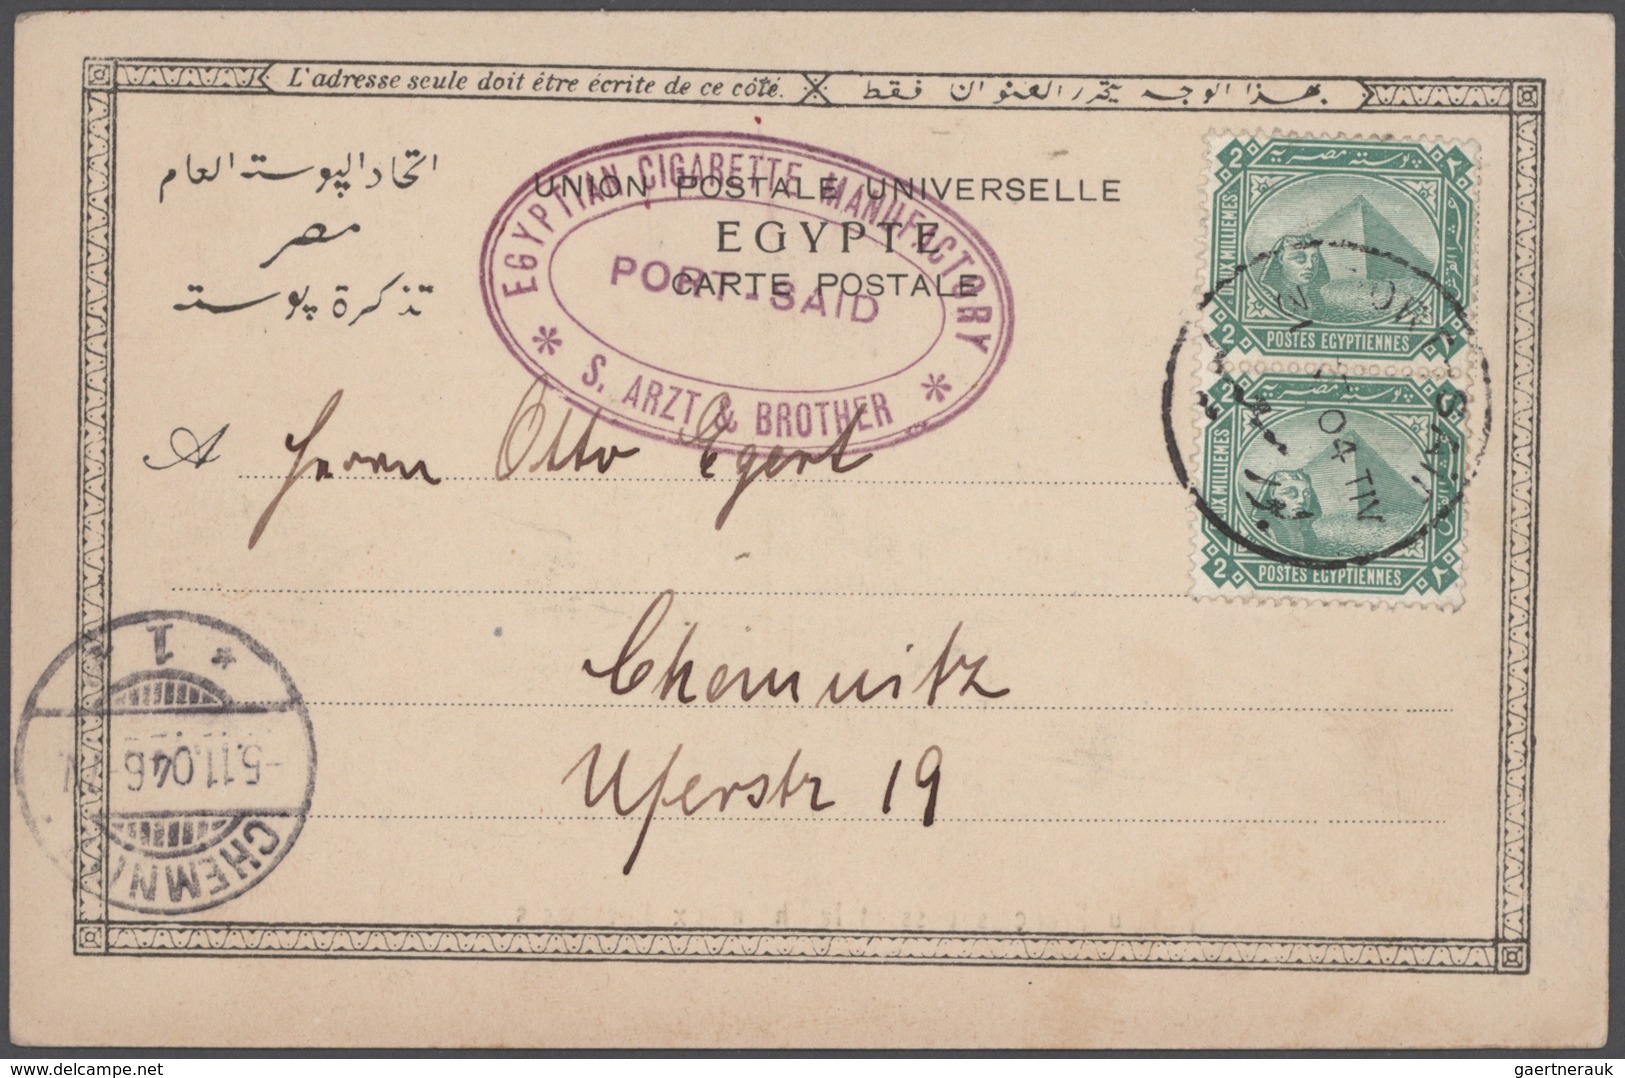 L'adresse seule doit être écrite de ce côté.
بهذا الوجه يحرر العنوان فقط
اتحاد البوسته العام
مصر
تذكرة بوسته
UNION POSTALE UNIVERSELLE
EGYPTE
CARTE POSTALE
EGYPTIAN CIGARETTE MANUFACTORY
PORT-SAID
* S. ARZT & BROTHER *
2 بوسته مصرية ٢
MILLIEMES
2 POSTES EGYPTIENNES ٢
2 بوسته مصرية ٢
MILLIEMES
2 POSTES EGYPTIENNES ٢
04 TIV
A Herrn Otto Egert
Chemnitz
Uferstr 19
* 1 *
-5.11.04.6-
CHEMN
gaertnerauk